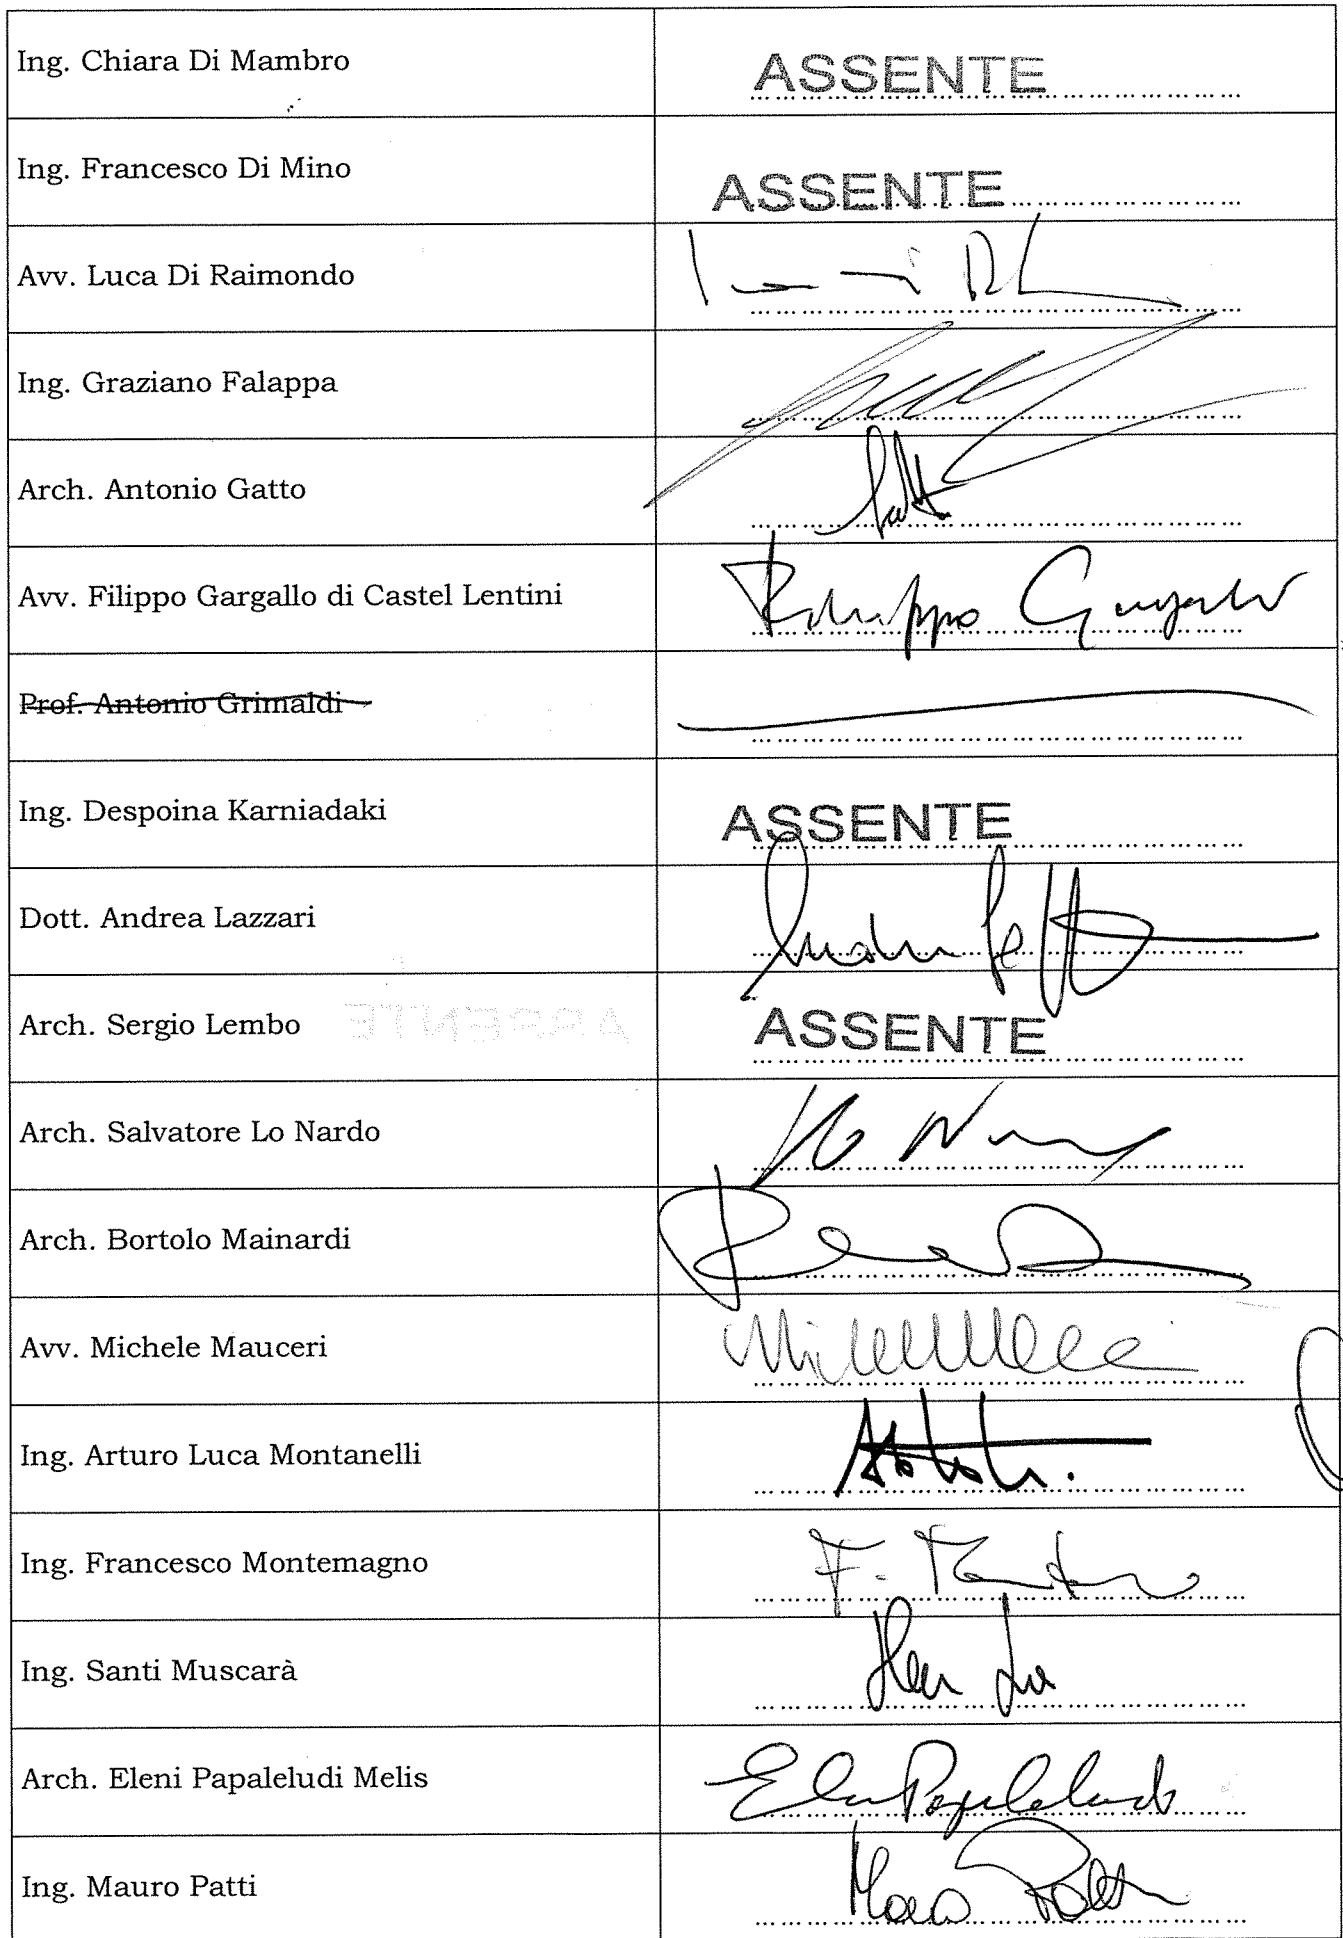 Ing. Chiara Di Mambro ASSENTE
Ing. Francesco Di Mino ASSENTE
Avv. Luca Di Raimondo
Ing. Graziano Falappa
Arch. Antonio Gatto
Avv. Filippo Gargallo di Castel Lentini Filippo Gargallo
Prof. Antonio Grimaldi
Ing. Despoina Karniadaki ASSENTE
Dott. Andrea Lazzari
Arch. Sergio Lembo ASSENTE
Arch. Salvatore Lo Nardo
Arch. Bortolo Mainardi
Avv. Michele Mauceri
Ing. Arturo Luca Montanelli
Ing. Francesco Montemagno
Ing. Santi Muscarà
Arch. Eleni Papaleludi Melis
Ing. Mauro Patti